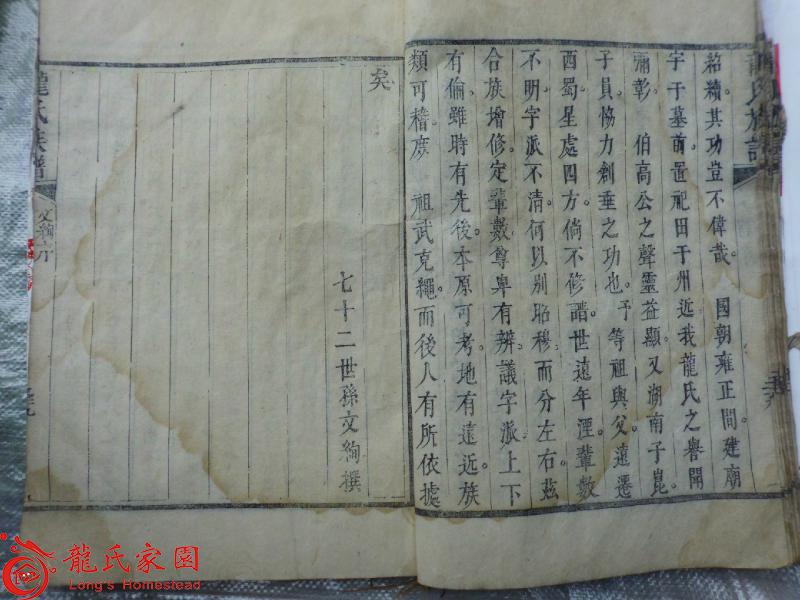 龍氏族譜
紹續其功豈不偉哉。 國朝雍正間建廟
宇于墓前置祀田于州近我龍氏之譽開
彌彰。 伯高公之聲靈益顯。又湖南子崑
子員恊力創垂之功也。予 等祖與父遠遷
西蜀星處四方。倘不修譜。世遠年湮。輩數
不明。字派不清。何以別昭穆。而分左右。茲
合族增修定輩數尊卑有辨。議字派上下
有倫。雖時有先後。本原可考。地有遠近。族
類可稽。庶 祖武克繩。而後人有所依據
矣
七十二世孫文絢撰
龍氏族譜
文絢序
龍氏家園
Long's Homestead